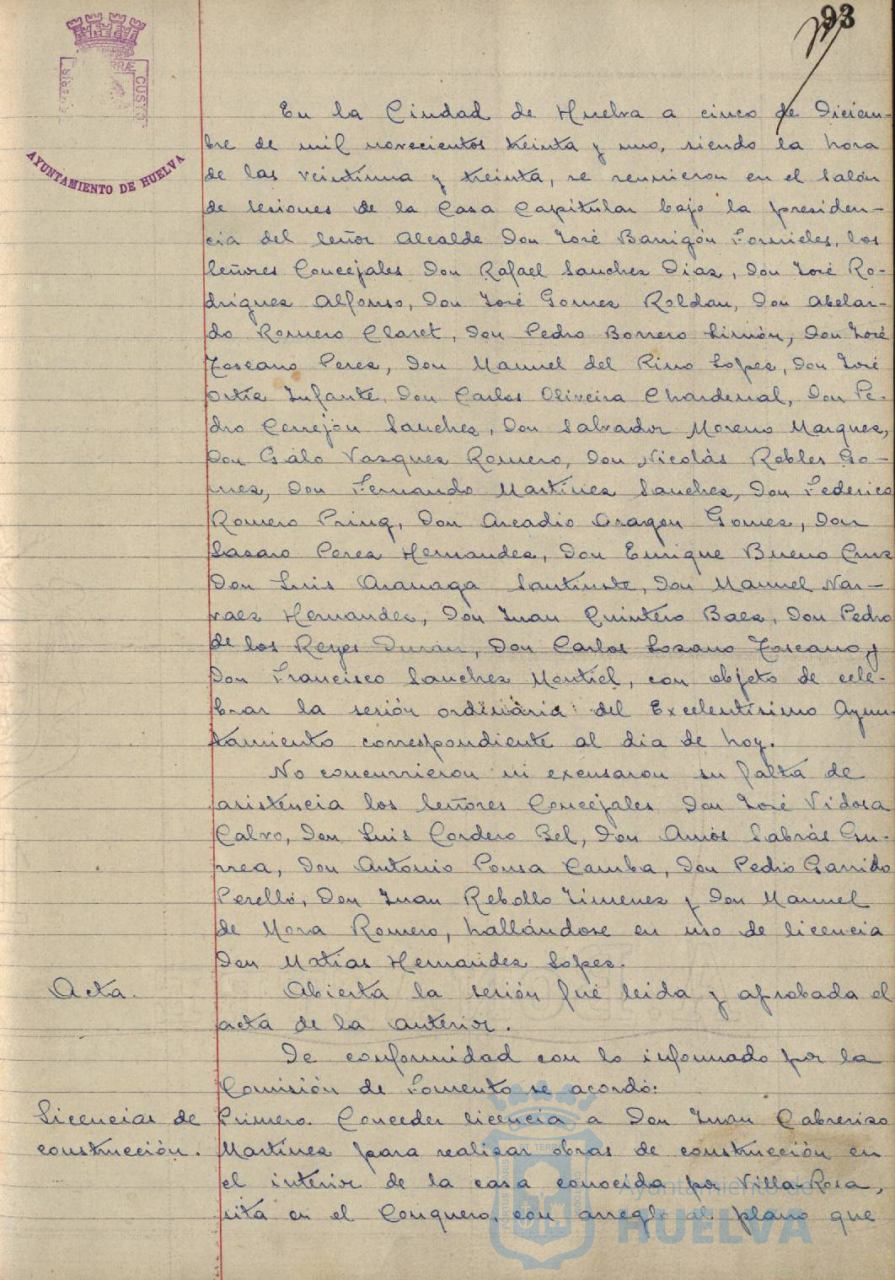 93
CUSTO
AYUNTAMIENTO DE HUELVA
En la Ciudad de Huelva a cinco de Diciem-
bre de mil novecientos treinta y uno, siendo la hora
de las veintiuna y treinta, se reunieron en el Salón
de sesiones de la Casa Capitular bajo la presiden-
cia del Señor Alcalde Don José Barrigón Fornieles, los
Señores Concejales Don Rafael Sanchez Diaz, Don José Ro-
driguez Alfonso, Don José Gomez Roldan, Don Abelar-
do Romero Claret, Don Pedro Borrero Limón, Don José
Toscano Perez, Don Manuel del Pino Lopez, Don José
Ortiz Infante, Don Carlos Oliveira Chardenal, Don Pe-
dro Cerrejón Sanchez, Don Salvador Moreno Marquez,
Don Galo Vazquez Romero, Don Nicolás Robles Go-
mez, Don Fernando Martínez Sanchez, Don Federico
Romero Pring, Don Arcadio Aragon Gomez, Don
Lazaro Perez Hernandez, Don Enrique Bueno Cruz
Don Luis Aranaga Santiuste, Don Manuel Nar-
vaez Hernandez, Don Juan Quintero Baez, Don Pedro
de los Reyes Duran, Don Carlos Lozano Toscano y
Don Francisco Sanchez Montiel, con objeto de cele-
brar la sesión ordinaria del Excelentísimo Ayun-
tamiento correspondiente al dia de hoy.
No concurrieron ni excusaron su falta de
asistencia los Señores Concejales Don José Vidosa
Calvo, Don Luis Cordero Bel, Don Amós Sabrás Gu-
rrea, Don Antonio Ponsa Camba, Don Pedro Garrido
Perelló, Don Juan Rebollo Jimenez y Don Manuel
de Mora Romero, hallándose en uso de licencia
Don Matias Hernandez Lopez.
Acta.
Abierta la sesión fué leida y aprobada el
acta de la anterior.
De conformidad con lo informado por la
Comisión de Fomento se acordó:
Licencias de
construcción.
Primero. Conceder licencia a Don Juan Cabrerizo
Martínez para realizar obras de construcción en
el interior de la casa conocida por Villa-Rosa,
sita en el Conquero, con arreglo al plano que
Ayuntamiento de
HUELVA